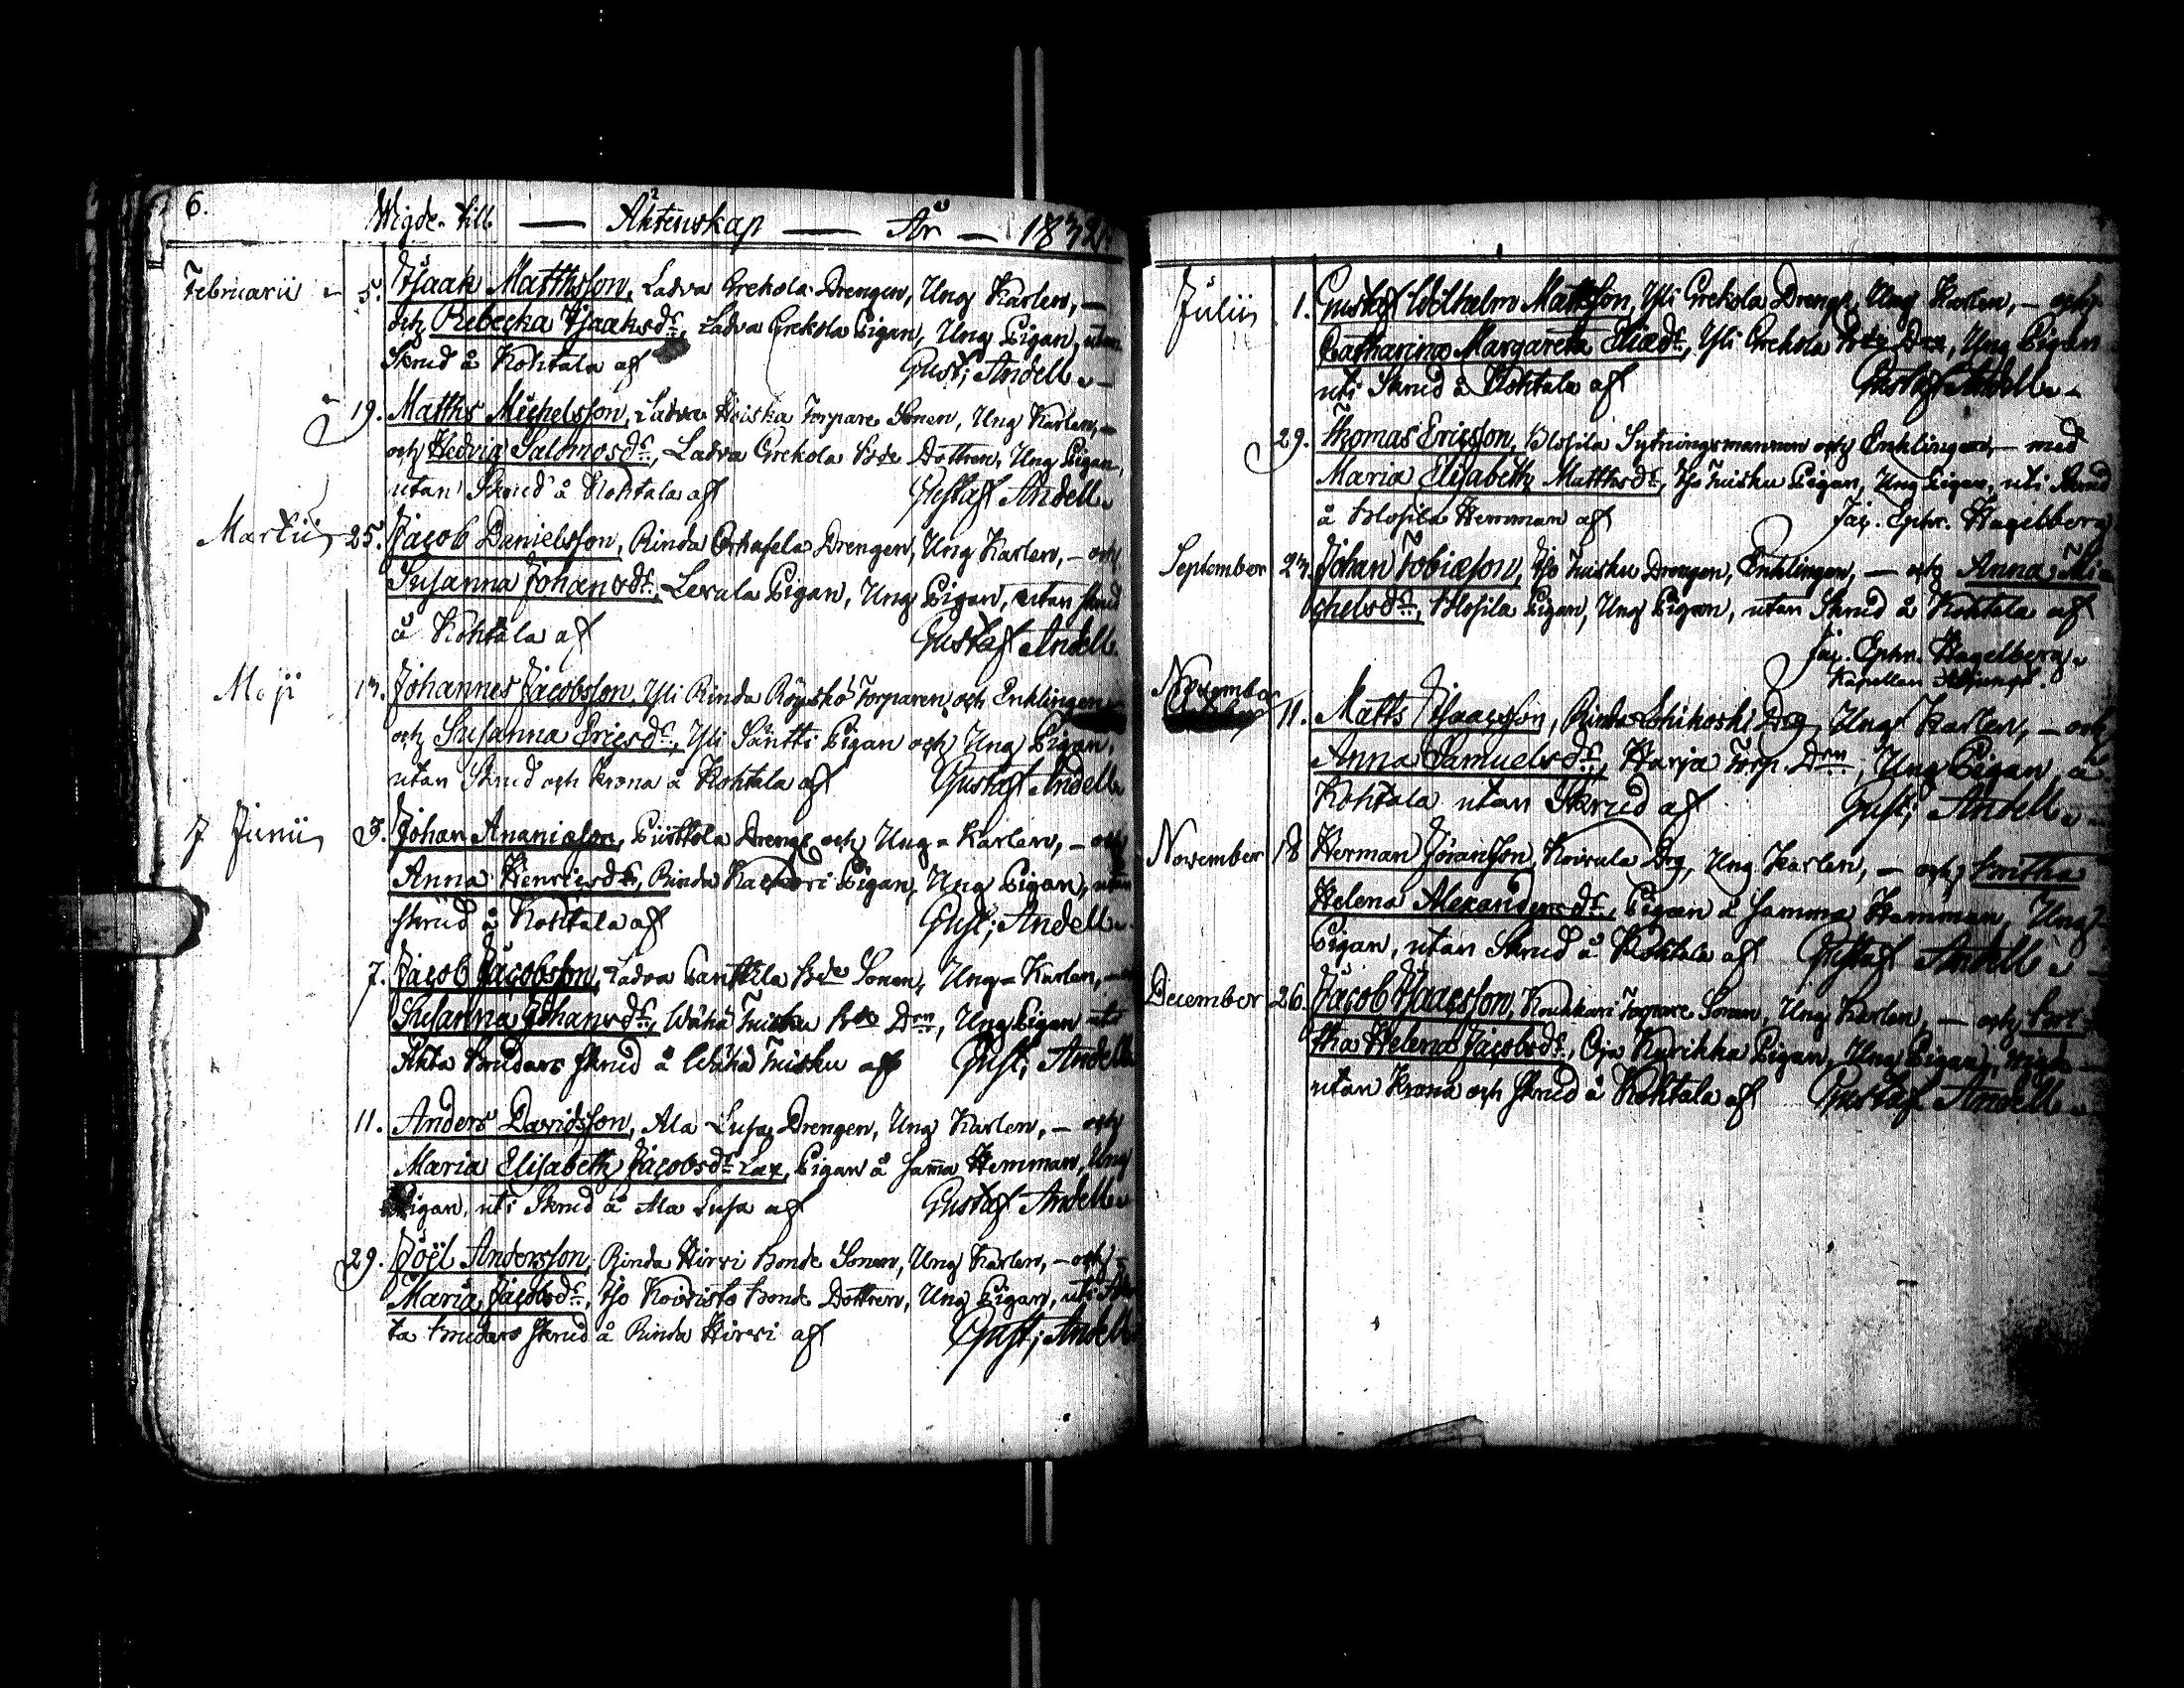 6.
Wigde till — Äktenskap — År — 1832.
Februarii 5. Isaak Matthsson, Ladva Grekola Drengen, Ung Karlen, —
och Rebecka Isaaksdr, Ladva Grekola Pigan, Ung Pigan, utan
Skrud å Kohtala af Gust; Andell.
19. Matths Michelsson, Ladva Torpare Sonen, Ung Karlen, —
och Hedvig Salomosdr, Ladva Grekola Bde Dottren, Ung Pigan,
utan Skrud å Kohtala af Gustaf Andell.
Martii 25. Jacob Danielsson, Rinda Drengen, Ung Karlen, — och
Susanna Johansdr, Levula Pigan, Ung Pigan, utan skrud
å Kohtala af Gustaf Andell.
Maji 13. Johannes Jacobsson, Yli Rinda Röyskö Torparen och Enklingen
och Susanna Ericsdr, Yli Säntti Pigan och Ung Pigan,
utan Skrud och krona å Kohtala af Gustaf Andell.
7 Junii 3. Johan Ananiæson, Piirttola Drengen och Ung-Karlen, — och
Anna Henricsdr, Rinda Pigan, Ung Pigan, utan
skrud å Kohtala af Gust; Andell.
7. Jacob Jacobsson, Ladva Panttila Bde Sonen, Ung-Karlen, —
Susanna Johansdr, Wähä Tuisku Bde Drn, Ung Pigan uti
Äkta Brudars skrud å Wähä Tuisku af Gust; Andell
11. Anders Davidsson, Ala Lusa Drengen, Ung Karlen, — och
Maria Elisabeth Jacobsdr Lax, Pigan å sama Hemman, Ung
Pigan, uti Skrud å Ala Lusa af Gustaf Andell.
29. Joël Andersson, Rinda Hirvi Bonde Sonen, Ung Karlen, — och
Maria Jacobsdr, Iso Koivisto Bonde Dottren, Ung Pigan, uti Äk
ta Brudars skrud å Rinda Hirvi af Gust; Andell
Julii 1. Gustaf Wilhelm Mattsson, Yli Grekola Drengen, Ung Karlen, — och
Catharina Margareta Eliædr, Yli Grekola Bde Drn, Ung Pigan
uti Skrud å Kohtala af Gustaf Andell. —
29. Thomas Ericsson, Blosila Sytningsmannen och Enklingen — med
Maria Elisabeth Matthsdr, Iso Tuisku Pigan, Ung Pigan, uti Skrud
å Blosila Hemman af Jac. Ephr. Hagelberg
September 23. Johan Tobiæson, Iso Tuisku Drengen, Enklingen, — och Anna Mi-
chelsdr, Blosila Pigan, Ung Pigan, utan Skrud å Kohtala af
Jac. Ephr. Hagelberg.
Kapellans Adjunct.
November 11. Matts Isaacsson, Rinda Lohikoski Drg, Ung Karlen, — och
Anna Samuelsdr, Harja Torp. Drn, Ung Pigan å
Kohtala utan Skrud af Gust; Andell. —
November 18 Herman Jöransson, Koivula Drg, Ung Karlen, — och Britha
Helena Alexandersdr, Pigan å samma Hemman, Ung
Pigan, utan Skrud å Kohtala af Gustaf Andell. —
December 26. Jacob Isaacsson, Koukkari Torpare Sonen, Ung Karlen, — och Bri-
tha Helena Jacobsdr, Oja Kurikka Pigan, Ung Pigan,
utan Krona och skrud å Kohtala af Gustaf Andell.